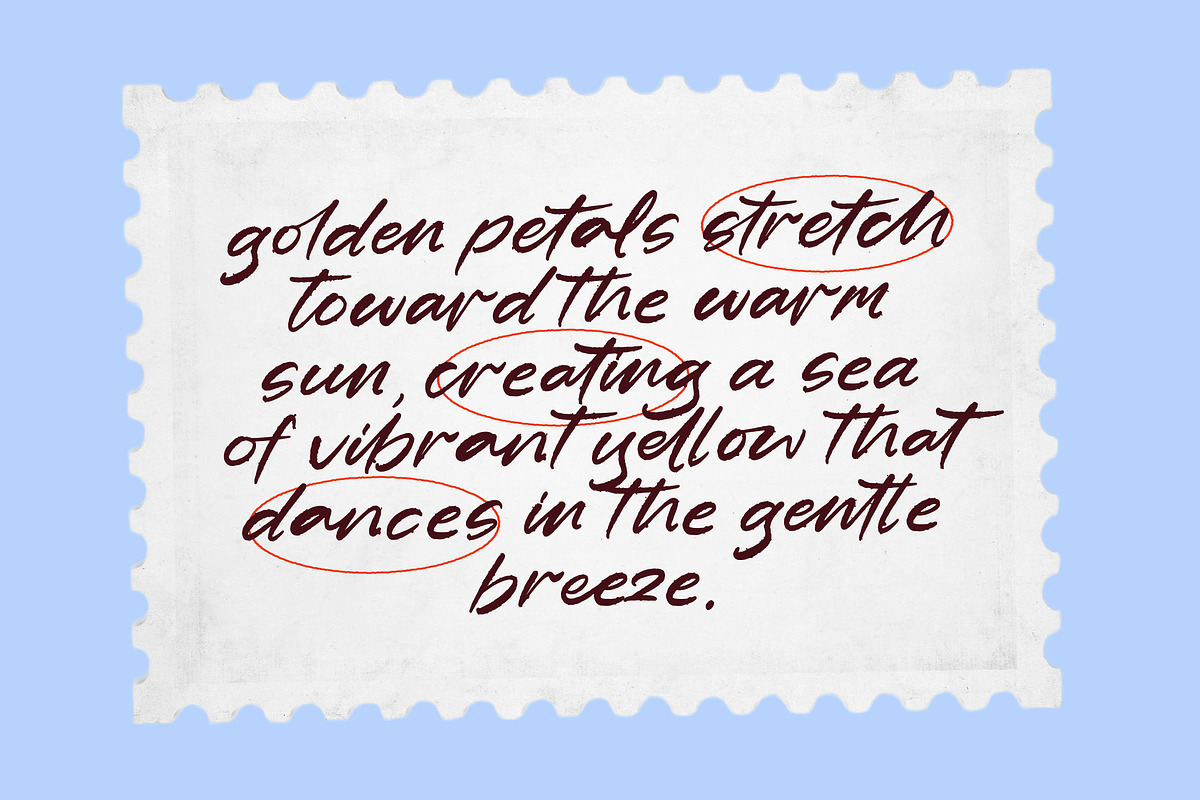 golden petals stretch
toward the warm
sun, creating a sea
of vibrant yellow that
dances in the gentle
breeze.